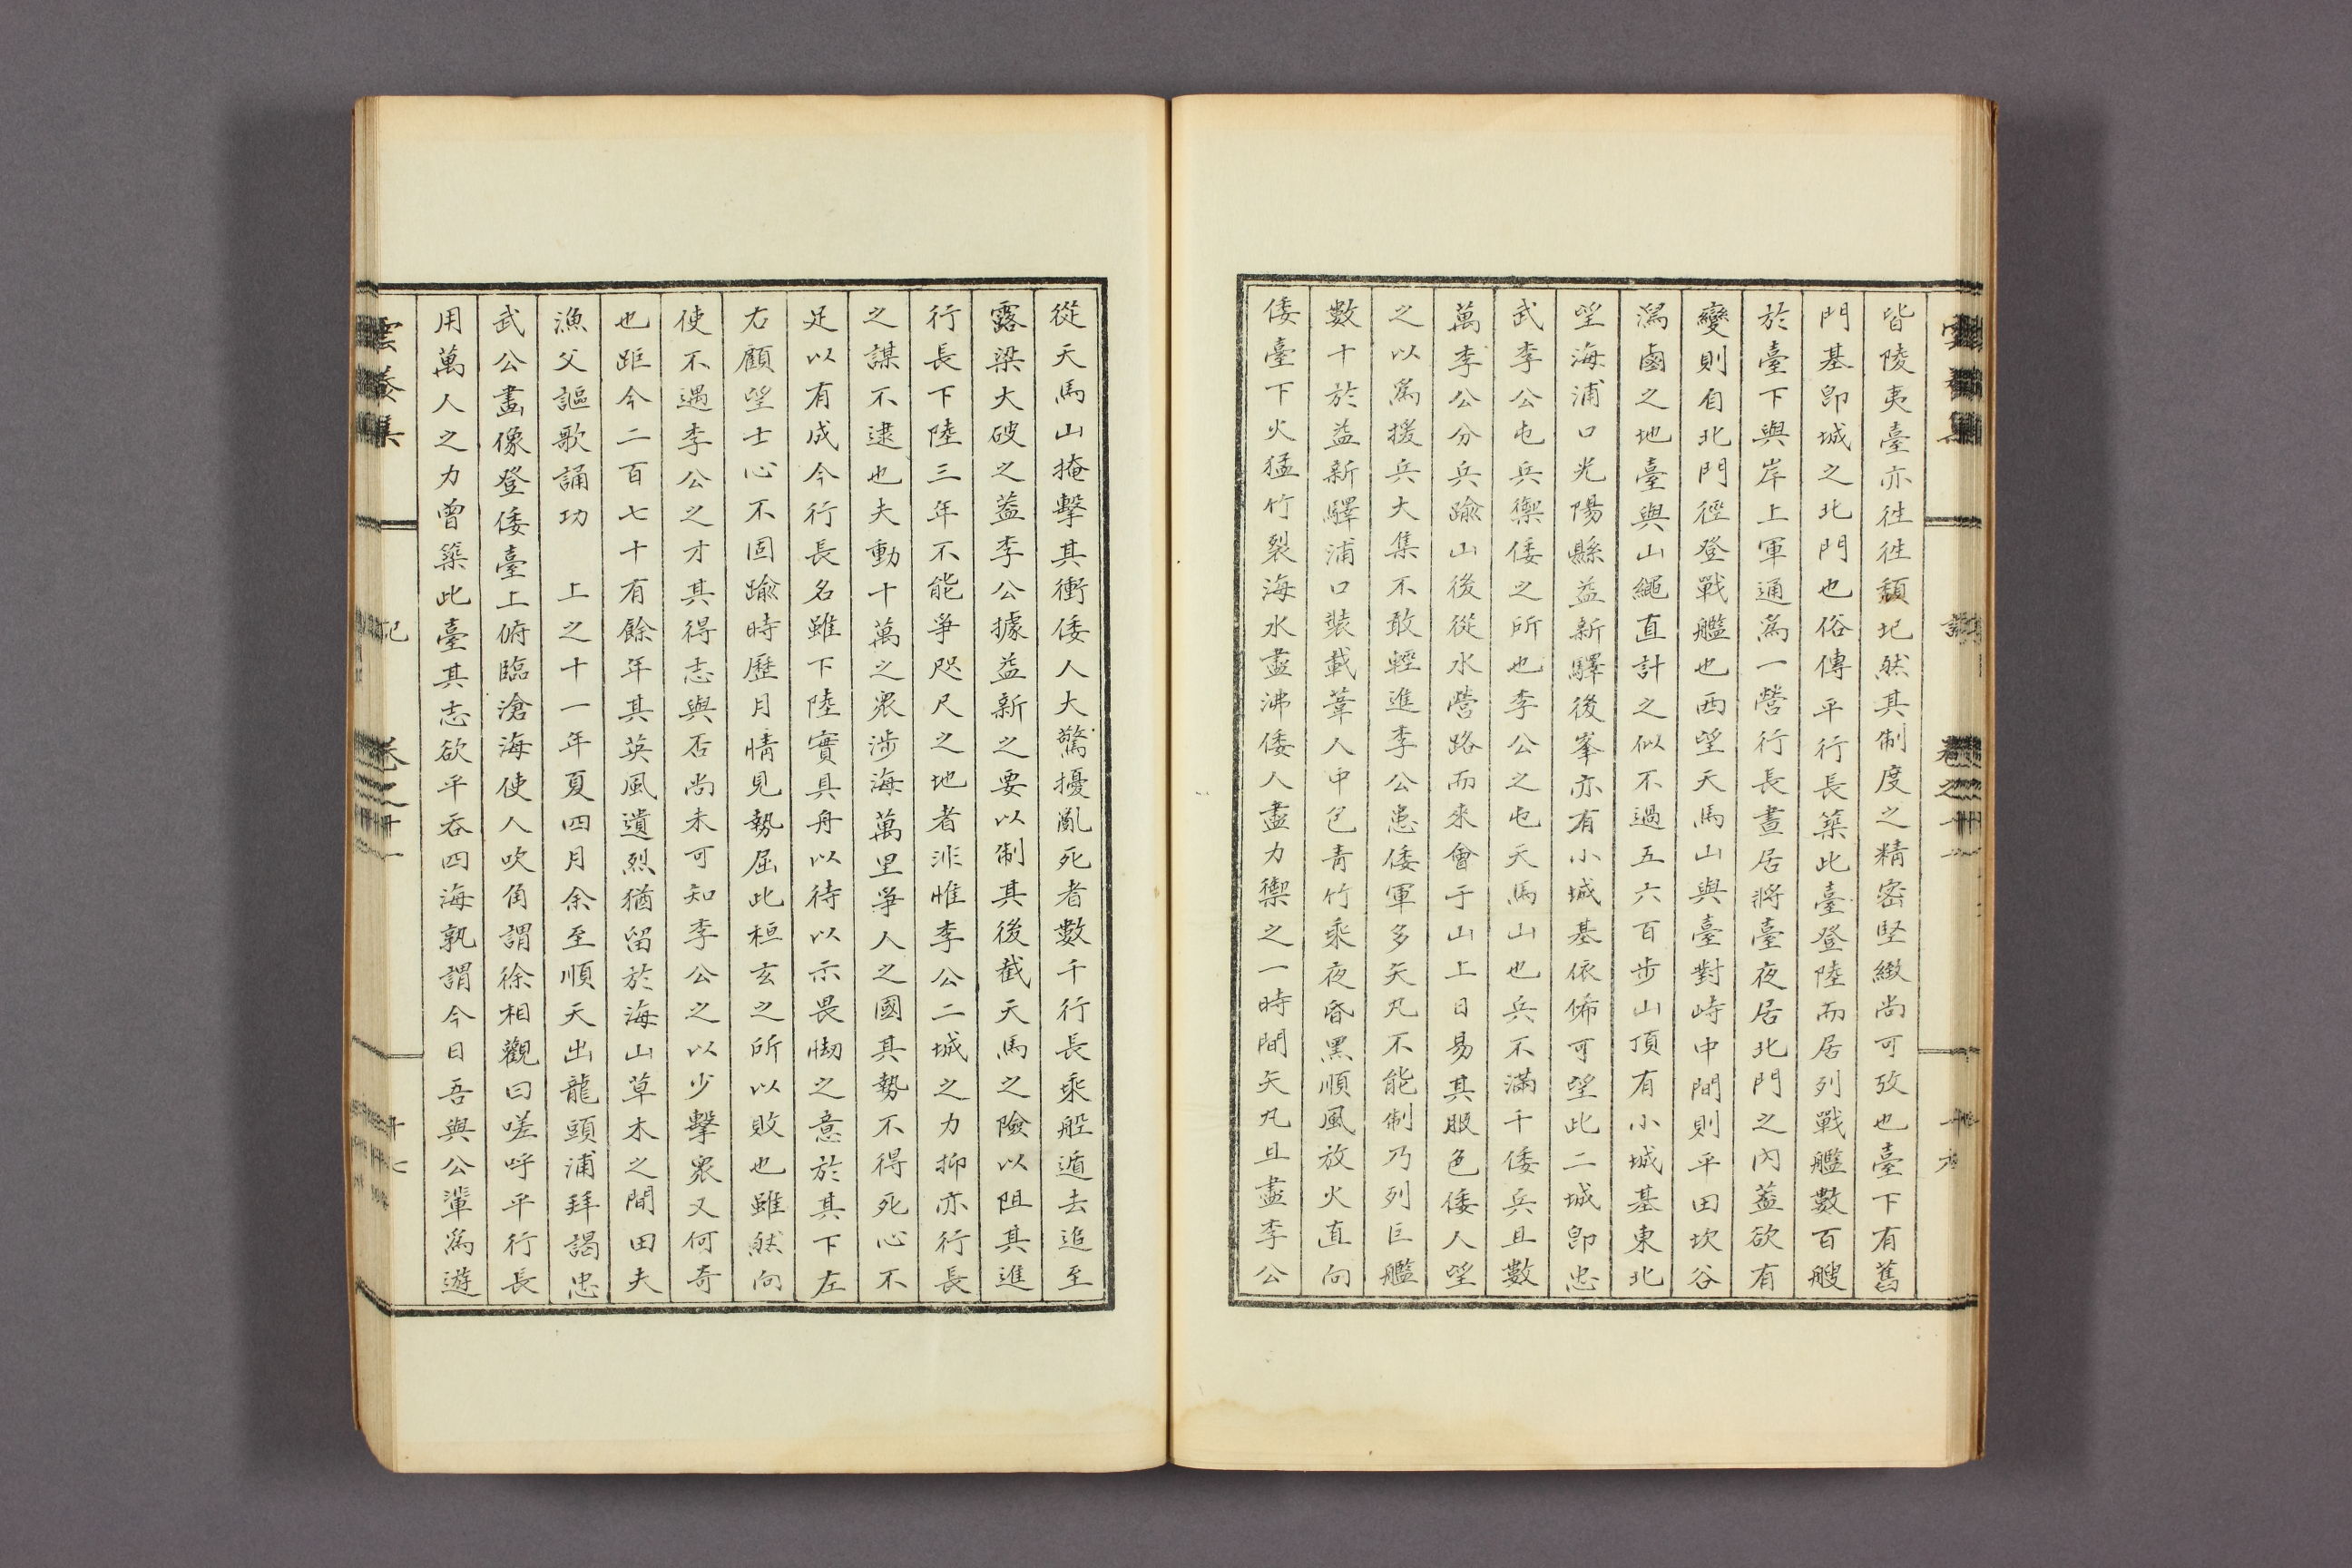 皆陵夷臺亦往往頹圮然其制度之精密堅緻尚可攷也臺下有舊
門基卽城之北門也俗傳平行長築此臺登陸而居列戰艦數百艘
於臺下與岸上軍通爲一營行長晝居將臺夜居北門之內蓋欲有
變則自北門徑登戰艦也西望天馬山與臺對峙中間則平田坎谷
潟鹵之地臺與山繩直計之似不過五六百步山頂有小城基東北
望海浦口光陽縣益新驛後峯亦有小城基依俙可望此二城卽忠
武李公屯兵禦倭之所也李公之屯天馬山也兵不滿千倭兵且數
萬李公分兵踰山後從水營路而來會于山上日易其服色倭人望
之以爲援兵大集不敢輕進李公患倭軍多矢丸不能制乃列巨艦
數十於益新驛浦口裝載葦人中包靑竹乘夜昏黑順風放火直向
倭臺下火猛竹裂海水盡沸倭人盡力禦之一時間矢丸且盡李公
從天馬山掩擊其衝倭人大驚擾亂死者數千行長乘船遁去追至
露梁大破之蓋李公據益新之要以制其後截天馬之險以阻其進
行長下陸三年不能爭咫尺之地者非惟李公二城之力抑亦行長
之謀不逮也夫動十萬之衆涉海萬里爭人之國其勢不得死心不
足以有成今行長名雖下陸實具舟以待以示畏㤼之意於其下左
右顧望士心不固踰時歷月情見勢屈此桓玄之所以敗也雖然向
使不遇李公之才其得志與否尚未可知李公之以少擊衆又何奇
也距今二百七十有餘年其英風遺烈猶留於海山草木之間田夫
漁父謳歌誦功　上之十一年夏四月余至順天出龍頭浦拜謁忠
武公畫像登倭臺上俯臨滄海使人吹角謂徐相觀曰嗟呼平行長
用萬人之力曾築此臺其志欲平呑四海孰謂今日吾與公輩爲遊
雲養集
記
卷之十一
卄七